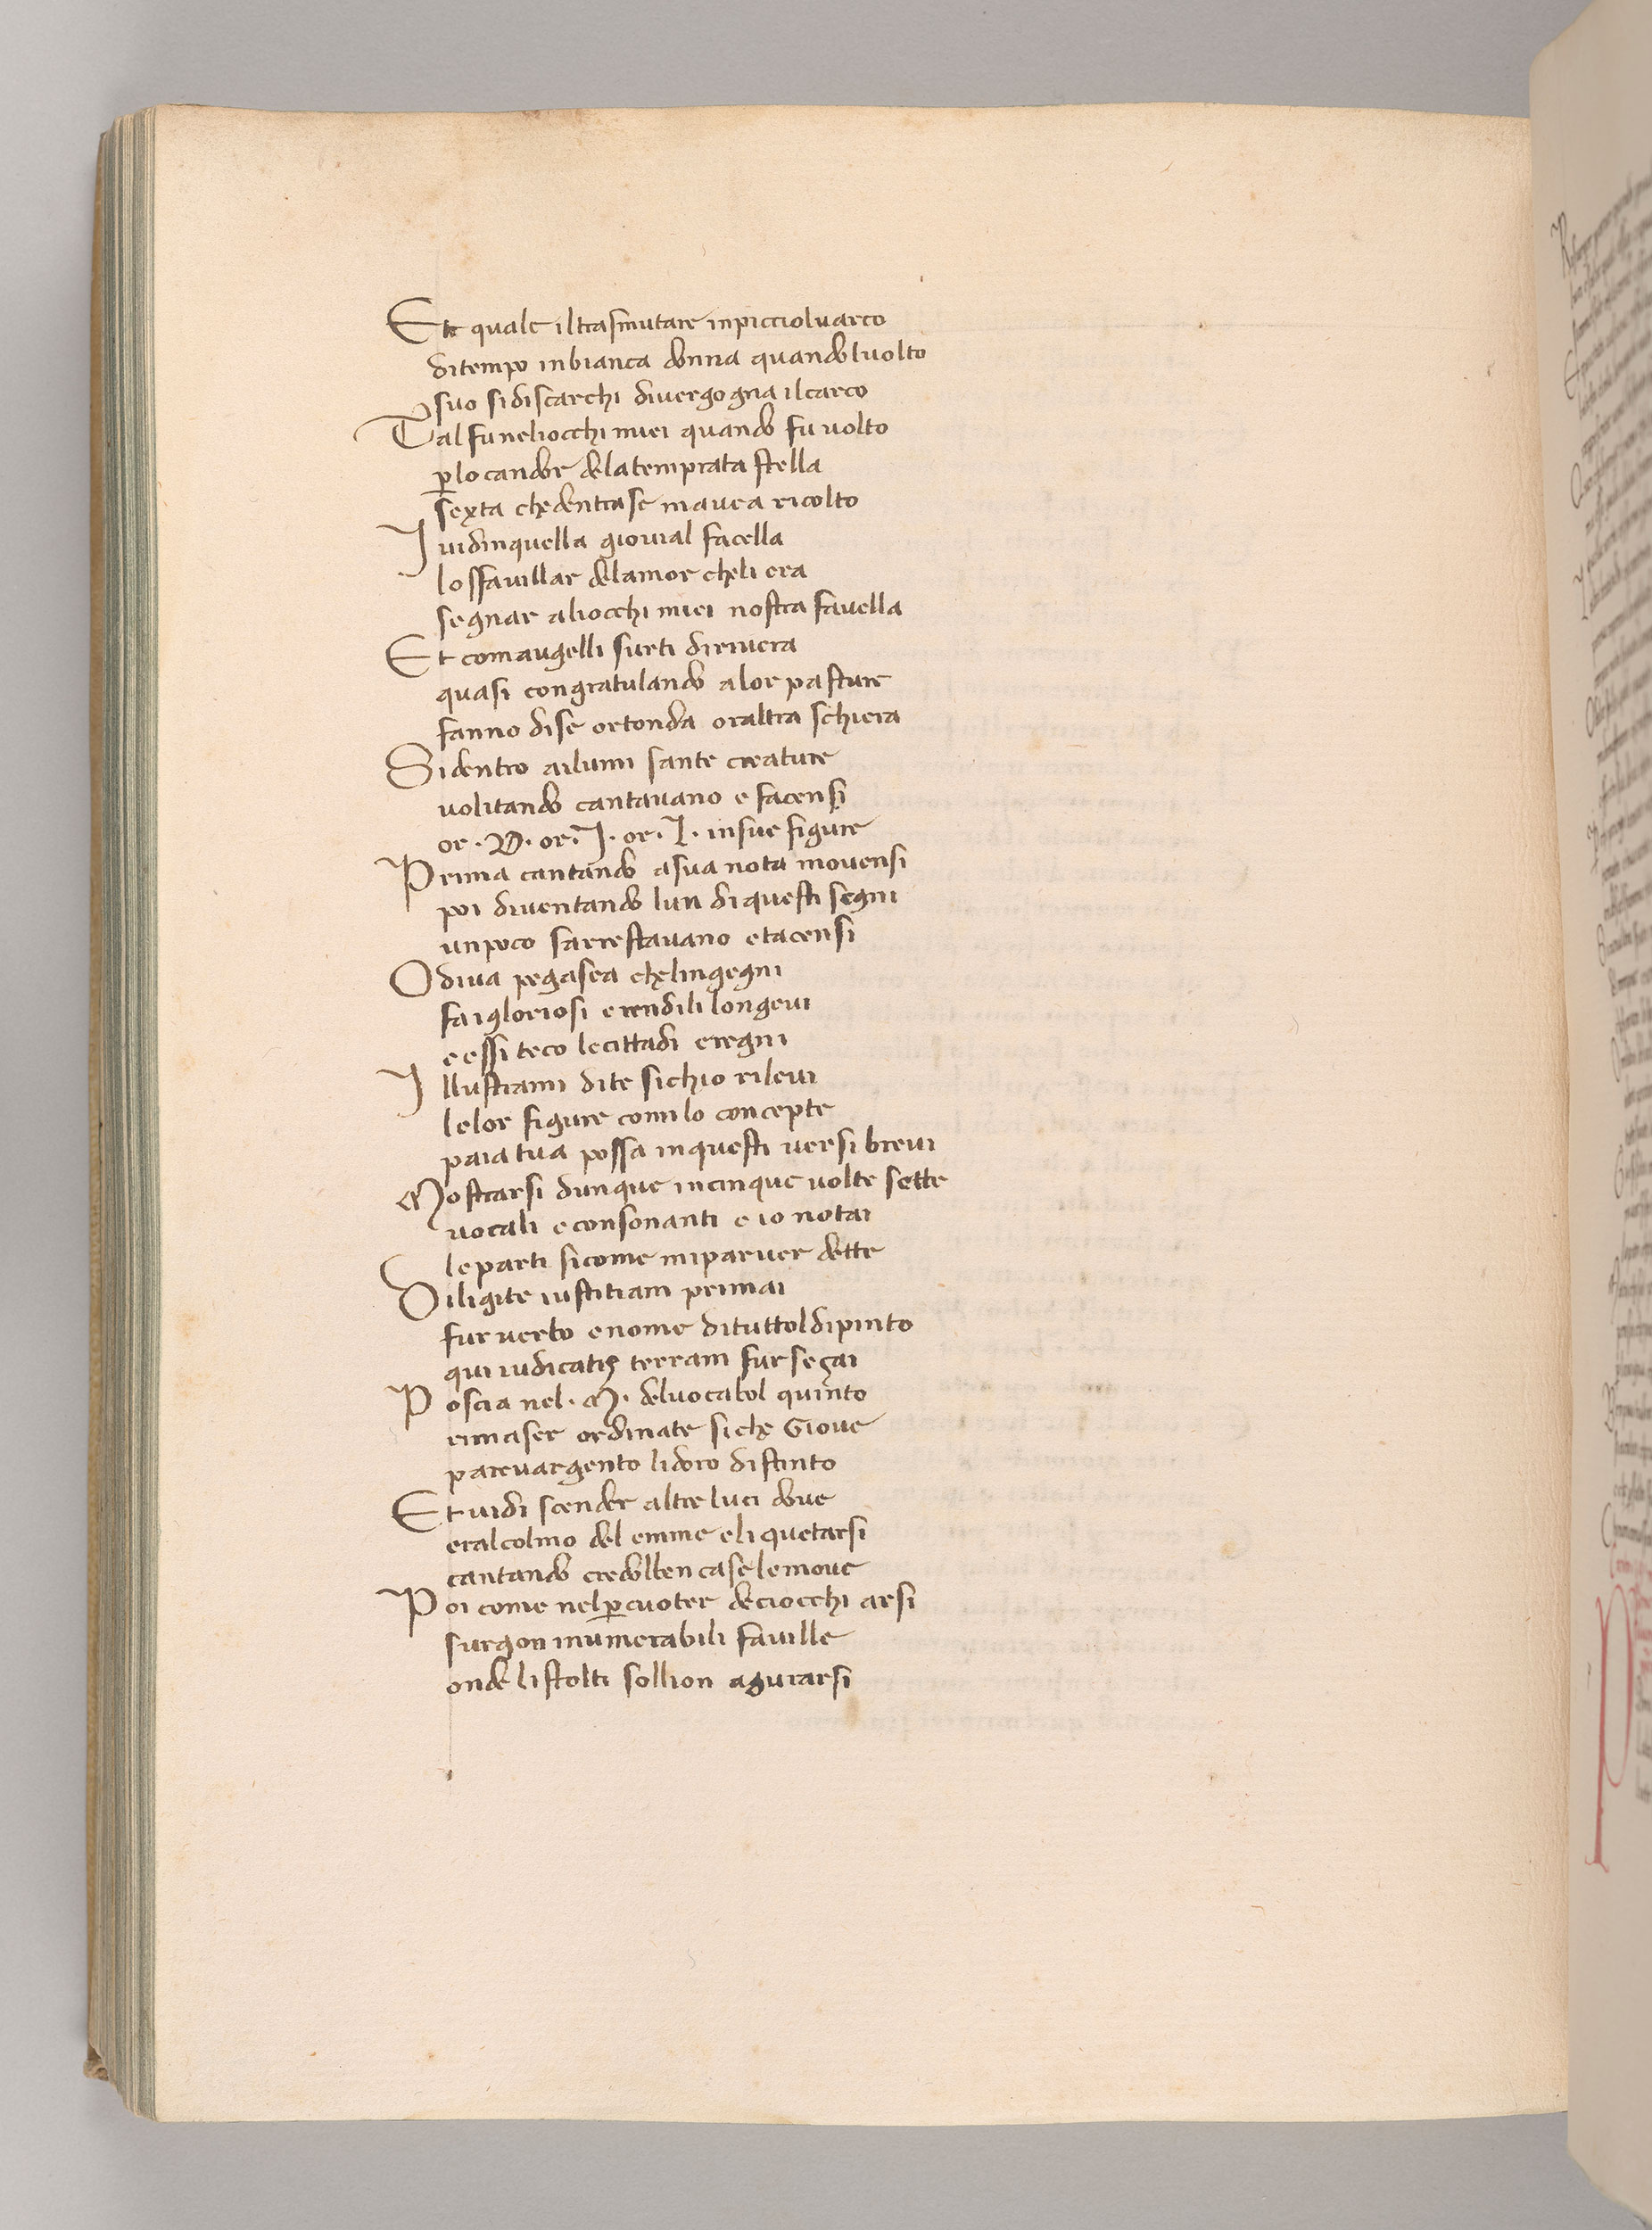 Et quale iltrasmutare inpicciolvarco
ditempo inbianca donna quandolvolto
suo sidiscarchi divergogna ilcarco
Tal funeliocchi miei quando fu volto
p̱lo candor dela temprata stella
sexta chedentrase mavea ricolto
I vidinquella giovial facella
lo sfavillar delamor cheli era
segnar aliocchi miei nostra favella
Et comaugelli surti diriviera
quasi congratulando alor pasture
fanno dise ortonda oraltra schiera
Sidentro ailumi sante creature
volitando cantavano e facensi
or · D · or · I · or · L · insue figure
Prima cantando asua nota movensi
poi diventando lun diquesti segni
unpoco sarrestavano etacensi
Odiva pegasea chelingegni
faigloriosi erendili longevi
eessi teco lecittadi eregni
Illustrami dite sichio rilevi
lelor figure comilo concepte
paia tua possa inquesti versi brevi
Mostrarsi dunque incinque volte sette
vocali econsonanti e io notai
leparti sicome miparver dette
Diligite iustitiam primai
fur verbo enome dituttoldipinto
qui iudicatis terram fursezai
Poscia nel · M · delvocabol quinto
rimaser ordinate siche Giove
parevargento lidoro distinto
Et vidi scender altre luci dove
eralcolmo del emme eli quetarsi
cantando credolben caselemove
Poi come nelp̱cuoter deciocchi arsi
surgon inumerabili faville
onde listolti sollion agurarsi